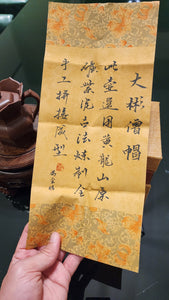 大彬僧帽
此壺選用黃龍山原
礦紫泥古法煉制全
手工拼接成型